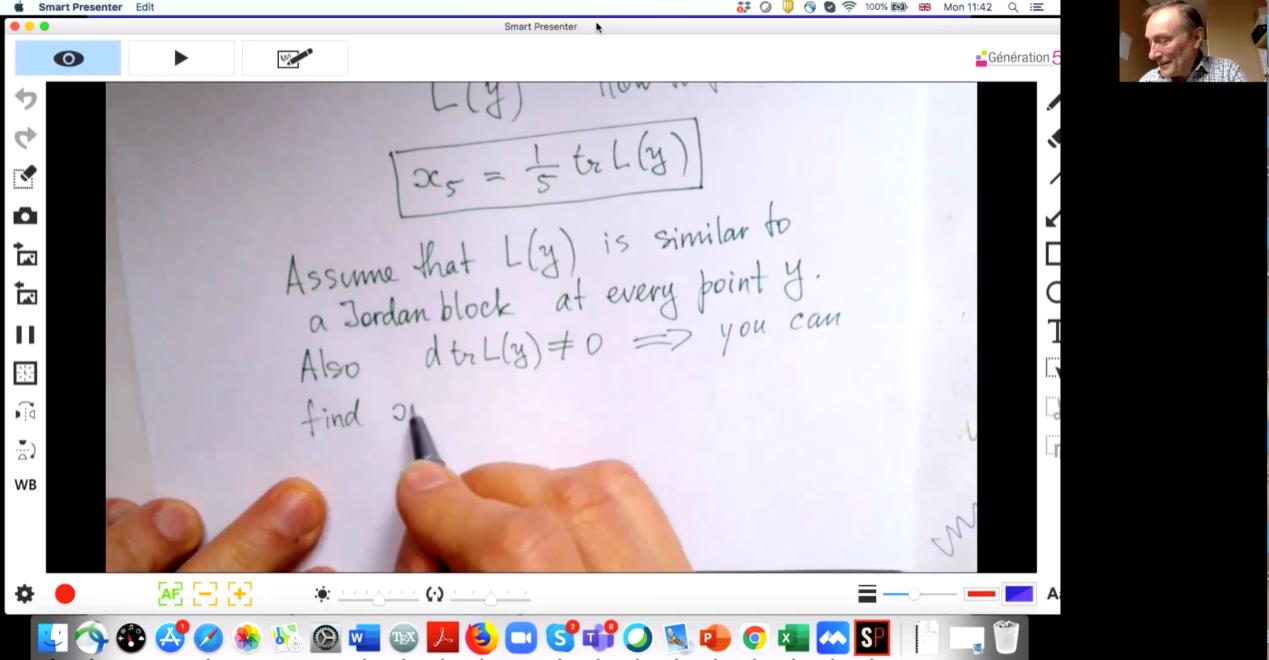 Smart Presenter Edit
100% Mon 11:42
Smart Presenter
Génération 5
L(y)
x₅ = 1/5 tr L(y)
Assume that L(y) is similar to
a Jordan block at every point y.
Also d tr L(y) ≠ 0 ⟹ you can
find x
WB
AF